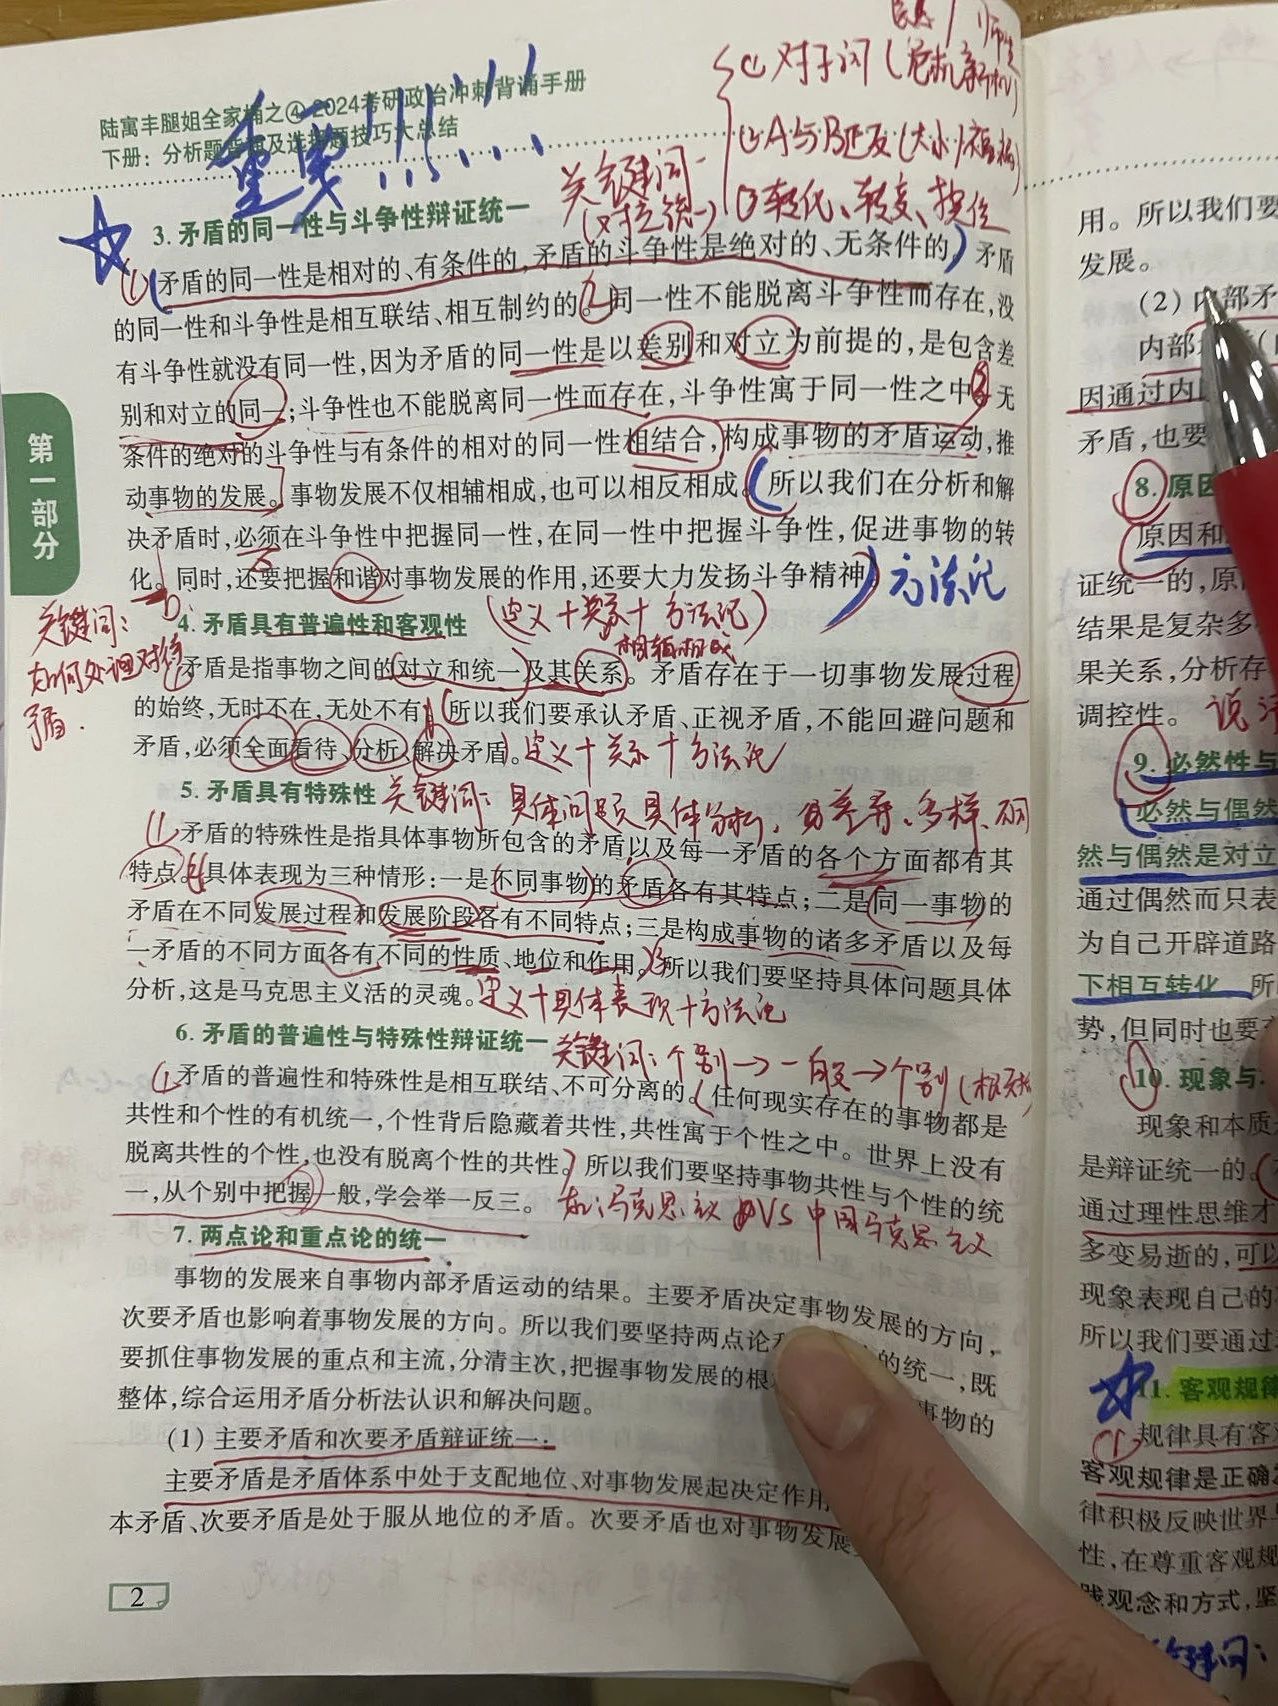 陆寓丰腿姐全家桶之④ 2024考研政治冲刺背诵手册
下册：分析题
及选择题技巧大总结
重要!!!!!!
① 对子词（危机 新机）
② A与B远反（大小 福祸）
③ 转化、转变、换位
关键词
（对立统一）
3. 矛盾的同一性与斗争性辩证统一
① 矛盾的同一性是相对的、有条件的，矛盾的斗争性是绝对的、无条件的，矛盾
的同一性和斗争性是相互联结、相互制约的。② 同一性不能脱离斗争性而存在，没
有斗争性就没有同一性，因为矛盾的同一性是以差别和对立为前提的，是包含差
别和对立的同一；斗争性也不能脱离同一性而存在，斗争性寓于同一性之中。③ 无
条件的绝对的斗争性与有条件的相对的同一性相结合，构成事物的矛盾运动，推
动事物的发展。事物发展不仅相辅相成，也可以相反相成。所以我们在分析和解
决矛盾时，必须在斗争性中把握同一性，在同一性中把握斗争性，促进事物的转
化。同时，还要把握和谐对事物发展的作用，还要大力发扬斗争精神。 方法论
第一部分
关键词：
如何处理对待
矛盾.
4. 矛盾具有普遍性和客观性 （定义＋关系＋方法论）
相辅相成
① 矛盾是指事物之间的对立和统一及其关系。矛盾存在于一切事物发展过程
的始终，无时不在，无处不有。所以我们要承认矛盾、正视矛盾，不能回避问题和
矛盾，必须全面看待、分析、解决矛盾。 定义＋关系＋方法论
5. 矛盾具有特殊性 关键词：具体问题具体分析，差异、多样、不同
① 矛盾的特殊性是指具体事物所包含的矛盾以及每一矛盾的各个方面都有其
特点。② 具体表现为三种情形：一是不同事物的矛盾各有其特点；二是同一事物的
矛盾在不同发展过程和发展阶段各有不同特点；三是构成事物的诸多矛盾以及每
一矛盾的不同方面各有不同的性质、地位和作用。③ 所以我们要坚持具体问题具体
分析，这是马克思主义活的灵魂。 定义＋具体表现＋方法论
6. 矛盾的普遍性与特殊性辩证统一 关键词：个别→一般→个别
① 矛盾的普遍性和特殊性是相互联结、不可分离的。任何现实存在的事物都是
共性和个性的有机统一，个性背后隐藏着共性，共性寓于个性之中。世界上没有
脱离共性的个性，也没有脱离个性的共性。所以我们要坚持事物共性与个性的统
一，从个别中把握一般，学会举一反三。 如：马克思主义 VS 中国马克思主义
7. 两点论和重点论的统一
事物的发展来自事物内部矛盾运动的结果。主要矛盾决定事物发展的方向，
次要矛盾也影响着事物发展的方向。所以我们要坚持两点论
的统一，既
要抓住事物发展的重点和主流，分清主次，把握事物发展的根
事物的
整体，综合运用矛盾分析法认识和解决问题。
(1) 主要矛盾和次要矛盾辩证统一：
主要矛盾是矛盾体系中处于支配地位、对事物发展起决定作用
本矛盾、次要矛盾是处于服从地位的矛盾。次要矛盾也对事物发展
2
用。所以我们要
发展。
(2) 内部矛
内部
因通过内
矛盾，也要
8. 原因
原因和
证统一的，原
结果是复杂多
果关系，分析存
调控性。
9. 必然性与
必然与偶然
然与偶然是对立
通过偶然而只表
为自己开辟道路
下相互转化 所
势，但同时也要
10. 现象与
现象和本质
是辩证统一的。
通过理性思维才
多变易逝的，可以
现象表现自己的
所以我们要通过
11. 客观规律
① 规律具有客
客观规律是正确
律积极反映世界
性，在尊重客观规
践观念和方式，坚
关键词：